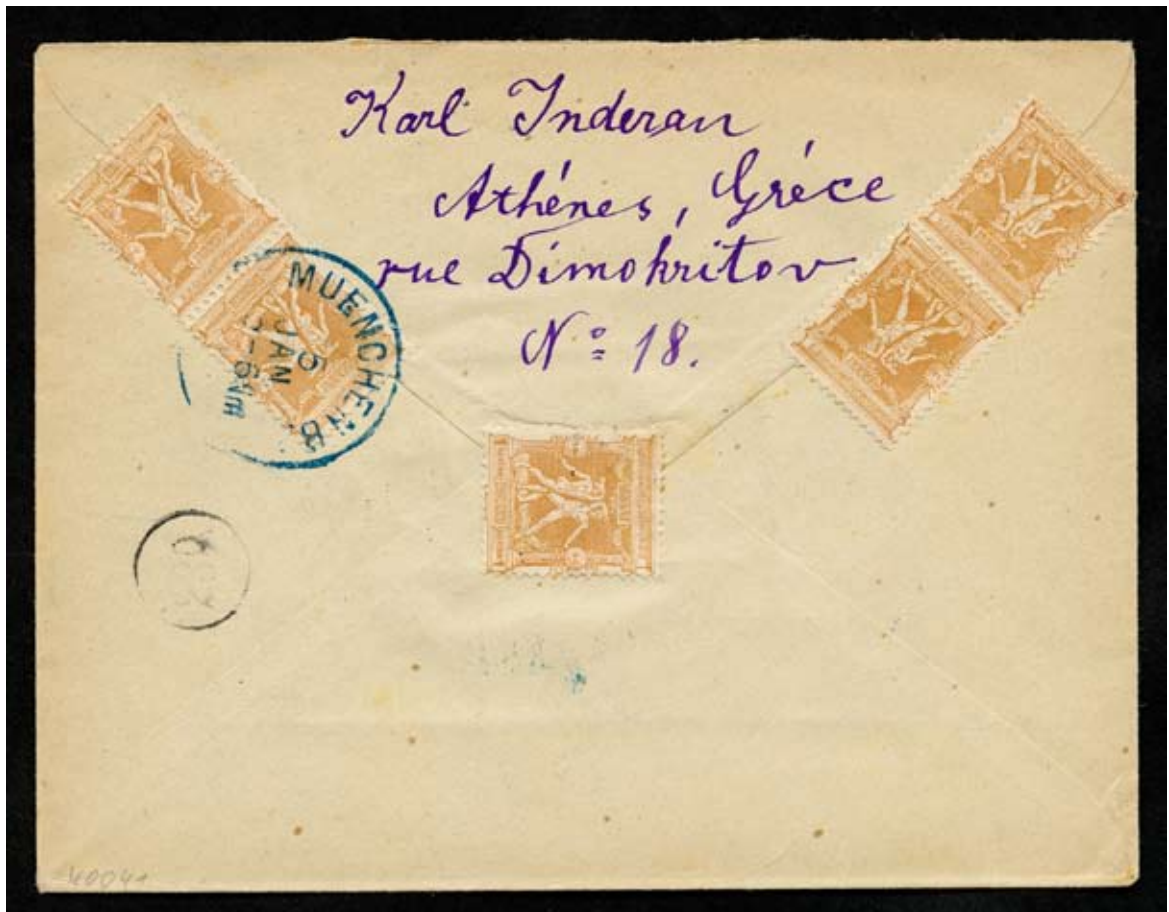 Karl Inderau
Athénes, Gréce
rue Dimokritov
No 18.
MUENCHEN 8
5
JAN
-6Nm
40041